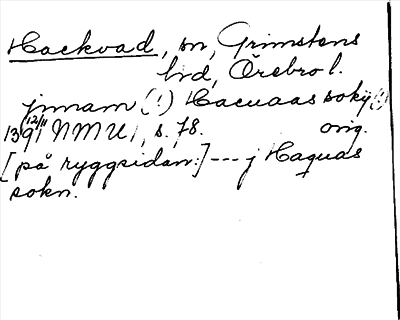 Hackvad, sn, Grimstens
hd, Örebro l.
jnnam (!) Hacuaas soky (!)
12/11
1391 NMU 1, s. 78. orig.
[på ryggsidan:] --- j Haquas
sokn.